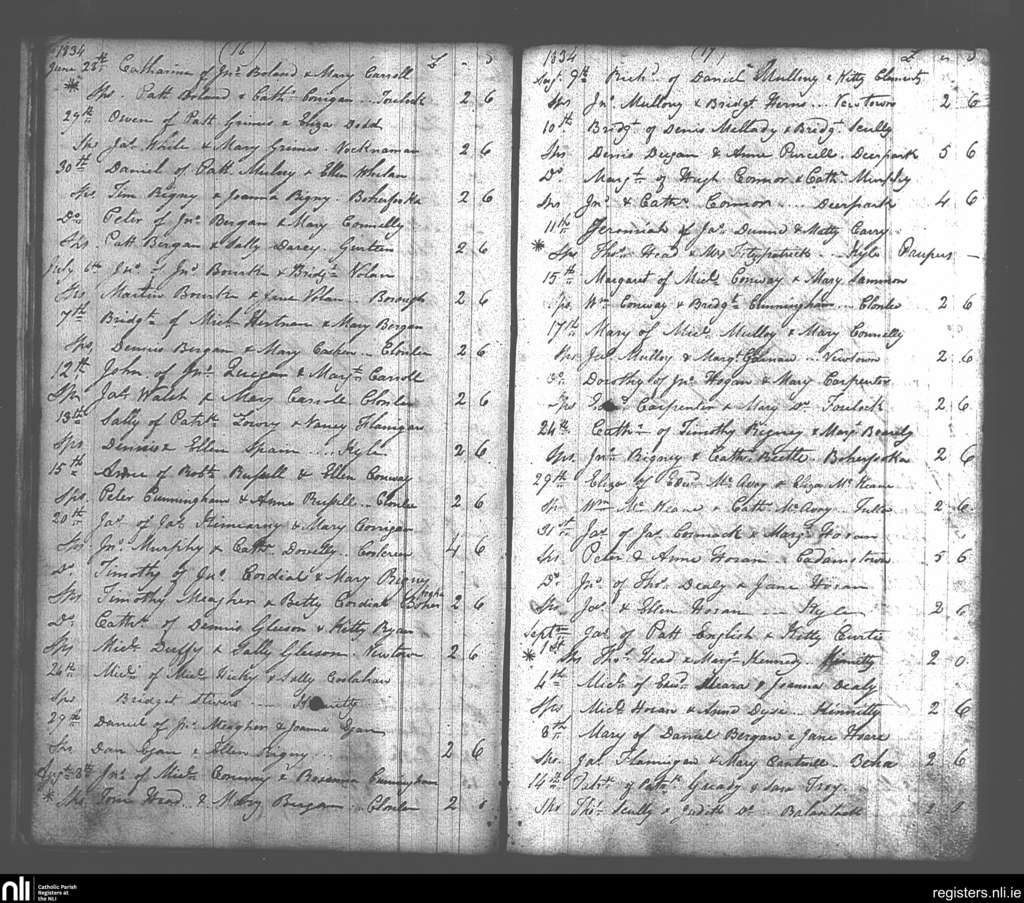 1834 (16) £ - s
June 28th Catharina of Jno. Boland & Mary Carroll
* Sps. Patt Boland & Cath. Corrigan 2 6
29th Owen of Patt Grimes & Eliza Dodd
Sps Jas. White & Mary Grimes Nocknaman 2 6
30th Daniel of Patt Mulroy & Ellen Whelan
Sps. Tim Rigney & Joanna Bigny. Boherfoka 2 6
Do. Peter of Jno. Bergan & Mary Connelly
Sps. Patt Bergan & Sally Darcy. Gurteen 2 6
July 6th Jno. of Jno. Bourke & Bridgt. Nolan
Sps. Martin Bourke & Nolan .. Borough 2 6
7th Bridgt. of Mich. & Mary Bergan
Sps. Dennis Bergan & Mary .. Clonlee 2 6
12th John of Jno. Quegan & Margt. Carroll
Sps. Jas. Walsh & Mary Carroll Clonlee 2 6
13th Sally of Patk. Lowry & Nancy Flanigan
Sps Dennis & Ellen Spain .... Kyle 2 6
15th Anne of Robt. Russell & Ellen Conway
Sps. Peter Cunningham & Anne Russell .. Clonlee 2 6
20th Jas. of Jas. & Mary Corrigan
Sps. Jno. Murphy & Cath. 4 6
Do. Timothy of Jno. Cordial & Mary Rigney
Sps Timothy Meagher & Betty Cordial 2 6
Do. Cath. of Dennis Gleeson & Kitty Ryan
Sps Mich. Duffy & Sally Gleeson. Newtown 2 6
26th Mich. of Mich. Hicky & Sally
Sps Bridget ---- Kinnitty
29th Daniel of Jno. Meagher & Joanna Egan
Sps Dan Egan & Ellen Rigney ... 2 6
Augst. 8th Jno. of Mich. Conway & Rosanna Cunningham
* Sps. Tom Head & Mary Bergan .. Clonlee 2 6
1834 (17) £ - s
Aug. 9th Richd. of Daniel Mullony & Kitty Clements
Sps Jno. Mullony & Bridgt. Herns ... Newtown 2 6
10th Bridgt. of Denis Mellady & Bridgt. Scully
Sps Denis Deegan & Anne Purcell. Deerpark 5 6
Do. Margt. of Hugh Connor & Cath. Murphy
Sps Jno. & Cath. Connor .... Deerpark 4 6
11th Jeremiah of Jas. Dunne & Matty Carry
* Sps Thos. Head & Mrs Fitzpatrick ... Kyle Paupers -
15th Margaret of Mich. Conway & Mary Sammon
Sps. Wm. Conway & Bridgt. Cunningham ... Clonlee 2 6
17th Mary of Mich. Mulloy & Mary Connelly
Sps Jas. Mulloy & Margt. ... Newtown 2 6
Do. Dorothy of Jno. Hogan & Mary Carpenter
Sps Carpenter & Mary Do. 2 6
24th Cath. of Timothy Rigney & Mary
Sps. Jno. Rigney & Cath. Boherfoka 2 6
29th Eliza of Edwd. McAvoy & Eliza McKeane
Sps Wm. McKeane & Cath. McAvoy. Tulla 2 6
31st Jas. of Jas. Cormack & Margt. Horan
Sps Peter & Anne Horan .. Cadamstown 5 6
Do. Jno. of Thos. Dealy & Jane Horan
Sps. Jos. & Ellen Horan .... Kyle 2 6
Septr. 1st Jas. of Patt English & Kitty Curtis
* Sps Thos. Head & Margt. Kennedy. Kinnitty 2 0
4th Mich. of Edwd. Meara & Joanna Dealy
Sps Mich. Horan & Anne .. Kinnitty 2 6
8th Mary of Daniel Bergan & Jane Hoare
Sps. Jas. Flannigan & Mary Cantwell .. 2 6
14th of Patk. Guidy & Sara Troy.
Sps Thos. Scully & Judith Do. 2 6
nli Catholic Parish
Registers at
the NLI
registers.nli.ie